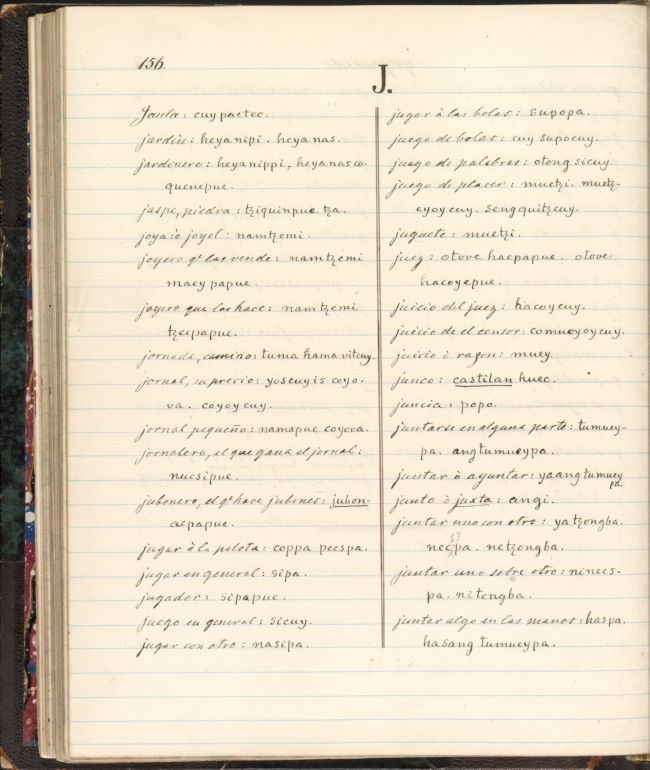 156.
J.
Jaula: cuy pactec.
jardin: heyanipi. heyanas.
jardinero: heyanippi, heyanas co-
quenepue.
jaspe, piedra: tziquinpue tza.
joya: ò joyel: namtzemi.
joyero qe las vende: namtzemi
maey papue.
joyero que las hace: namtzemi
tzecpapue.
jornada, camino: tuma hama vitcuy.
jornal, su precio: yoscuyis coyo-
va. coyoycuy.
jornal pequeño: namapue coyova.
jornalero, el que gana el jornal:
nucsipue.
jubonero, el qe hace jubones: jubon-
aepapue.
jugar à la pelota: coppa pecspa.
jugar en general: sipa.
jugador: sipapue.
juego en general: sicuy.
jugar con otro: nasipa.
jugar à las bolas: supopa.
juego de bolas: cuy supocuy.
juego de palabras: otong sicuy.
juego de placer: muetzi. muetz-
eyoycuy. sengquitzcuy.
juguete: muetzi.
juez: otove hacpapue. otove-
hacoyepue.
juicio del juez: hacoycuy.
juicio de el censor: comueyoycuy.
juicio ò razon: muey.
junco: castilan huec.
juncia: popo.
juntarse en alguna parte: tumuey-
pa. angtumueypa.
juntar ò ayuntar: yaangtumuey
pa.
junto ò juxta: angi.
juntar uno con otro: yatzongba.
s?
necpa. netzongba.
juntar uno sobre otro: ninecs-
pa. nitengba.
juntar algo en las manos: haspa.
hasang tumueypa.